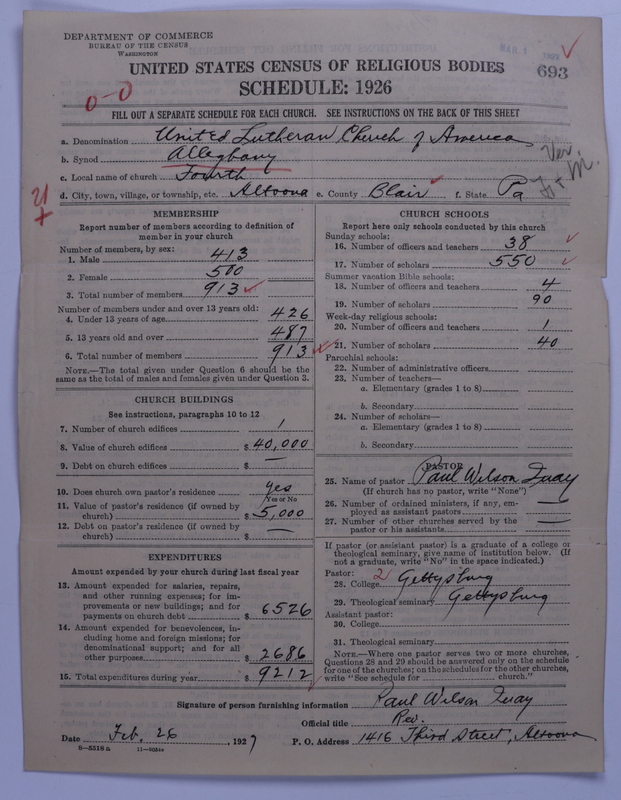 DEPARTMENT OF COMMERCE
BUREAU OF THE CENSUS
WASHINGTON
UNITED STATES CENSUS OF RELIGIOUS BODIES
693
SCHEDULE: 1926
0-0
FILL OUT A SEPARATE SCHEDULE FOR EACH CHURCH. SEE INSTRUCTIONS ON THE BACK OF THIS SHEET
a. Denomination United Lutheran Church of America
b. Synod Allegbany
c. Local name of church Fourth
d. City, town, village, or township, etc. Altoona e. County Blair f. State Pa
Ver.
MEMBERSHIP
Report number of members according to definition of
member in your church
Number of members, by sex:
1. Male 413
2. Female 500
3. Total number of members 913
Number of members under and over 13 years old:
4. Under 13 years of age 426
5. 13 years old and over 487
6. Total number of members 913
NOTE.—The total given under Question 6 should be the
same as the total of males and females given under Question 3.
CHURCH BUILDINGS
See instructions, paragraphs 10 to 12
7. Number of church edifices 1
8. Value of church edifices $ 40,000
9. Debt on church edifices $ —
10. Does church own pastor's residence yes
Yes or No
11. Value of pastor's residence (if owned by
church) $ 5,000
12. Debt on pastor's residence (if owned by
church) $ —
EXPENDITURES
Amount expended by your church during last fiscal year
13. Amount expended for salaries, repairs,
and other running expenses; for im-
provements or new buildings; and for
payments on church debt $ 6526
14. Amount expended for benevolences, in-
cluding home and foreign missions; for
denominational support; and for all
other purposes $ 2686
15. Total expenditures during year $ 9212
CHURCH SCHOOLS
Report here only schools conducted by this church
Sunday schools:
16. Number of officers and teachers 38
17. Number of scholars 550
Summer vacation Bible schools:
18. Number of officers and teachers 4
19. Number of scholars 90
Week-day religious schools:
20. Number of officers and teachers 1
21. Number of scholars 40
Parochial schools:
22. Number of administrative officers
23. Number of teachers—
a. Elementary (grades 1 to 8)
b. Secondary
24. Number of scholars—
a. Elementary (grades 1 to 8)
b. Secondary
PASTOR
25. Name of pastor Paul Wilson Quay
(If church has no pastor, write "None")
26. Number of ordained ministers, if any, em-
ployed as assistant pastors —
27. Number of other churches served by the
pastor or his assistants —
If pastor (or assistant pastor) is a graduate of a college or
theological seminary, give name of institution below. (If
not a graduate, write "No" in the space indicated.)
Pastor: 2
28. College Gettysburg
29. Theological seminary Gettysburg
Assistant pastor:
30. College
31. Theological seminary
NOTE.—Where one pastor serves two or more churches,
Questions 28 and 29 should be answered only on the schedule
for one of the churches; on the schedules for the other churches,
write "See schedule for church."
Signature of person furnishing information Paul Wilson Quay
Official title Rev.
Date Feb. 26, 1927 P. O. Address 1416 Third Street, Altoona
8—5518a 11—9034